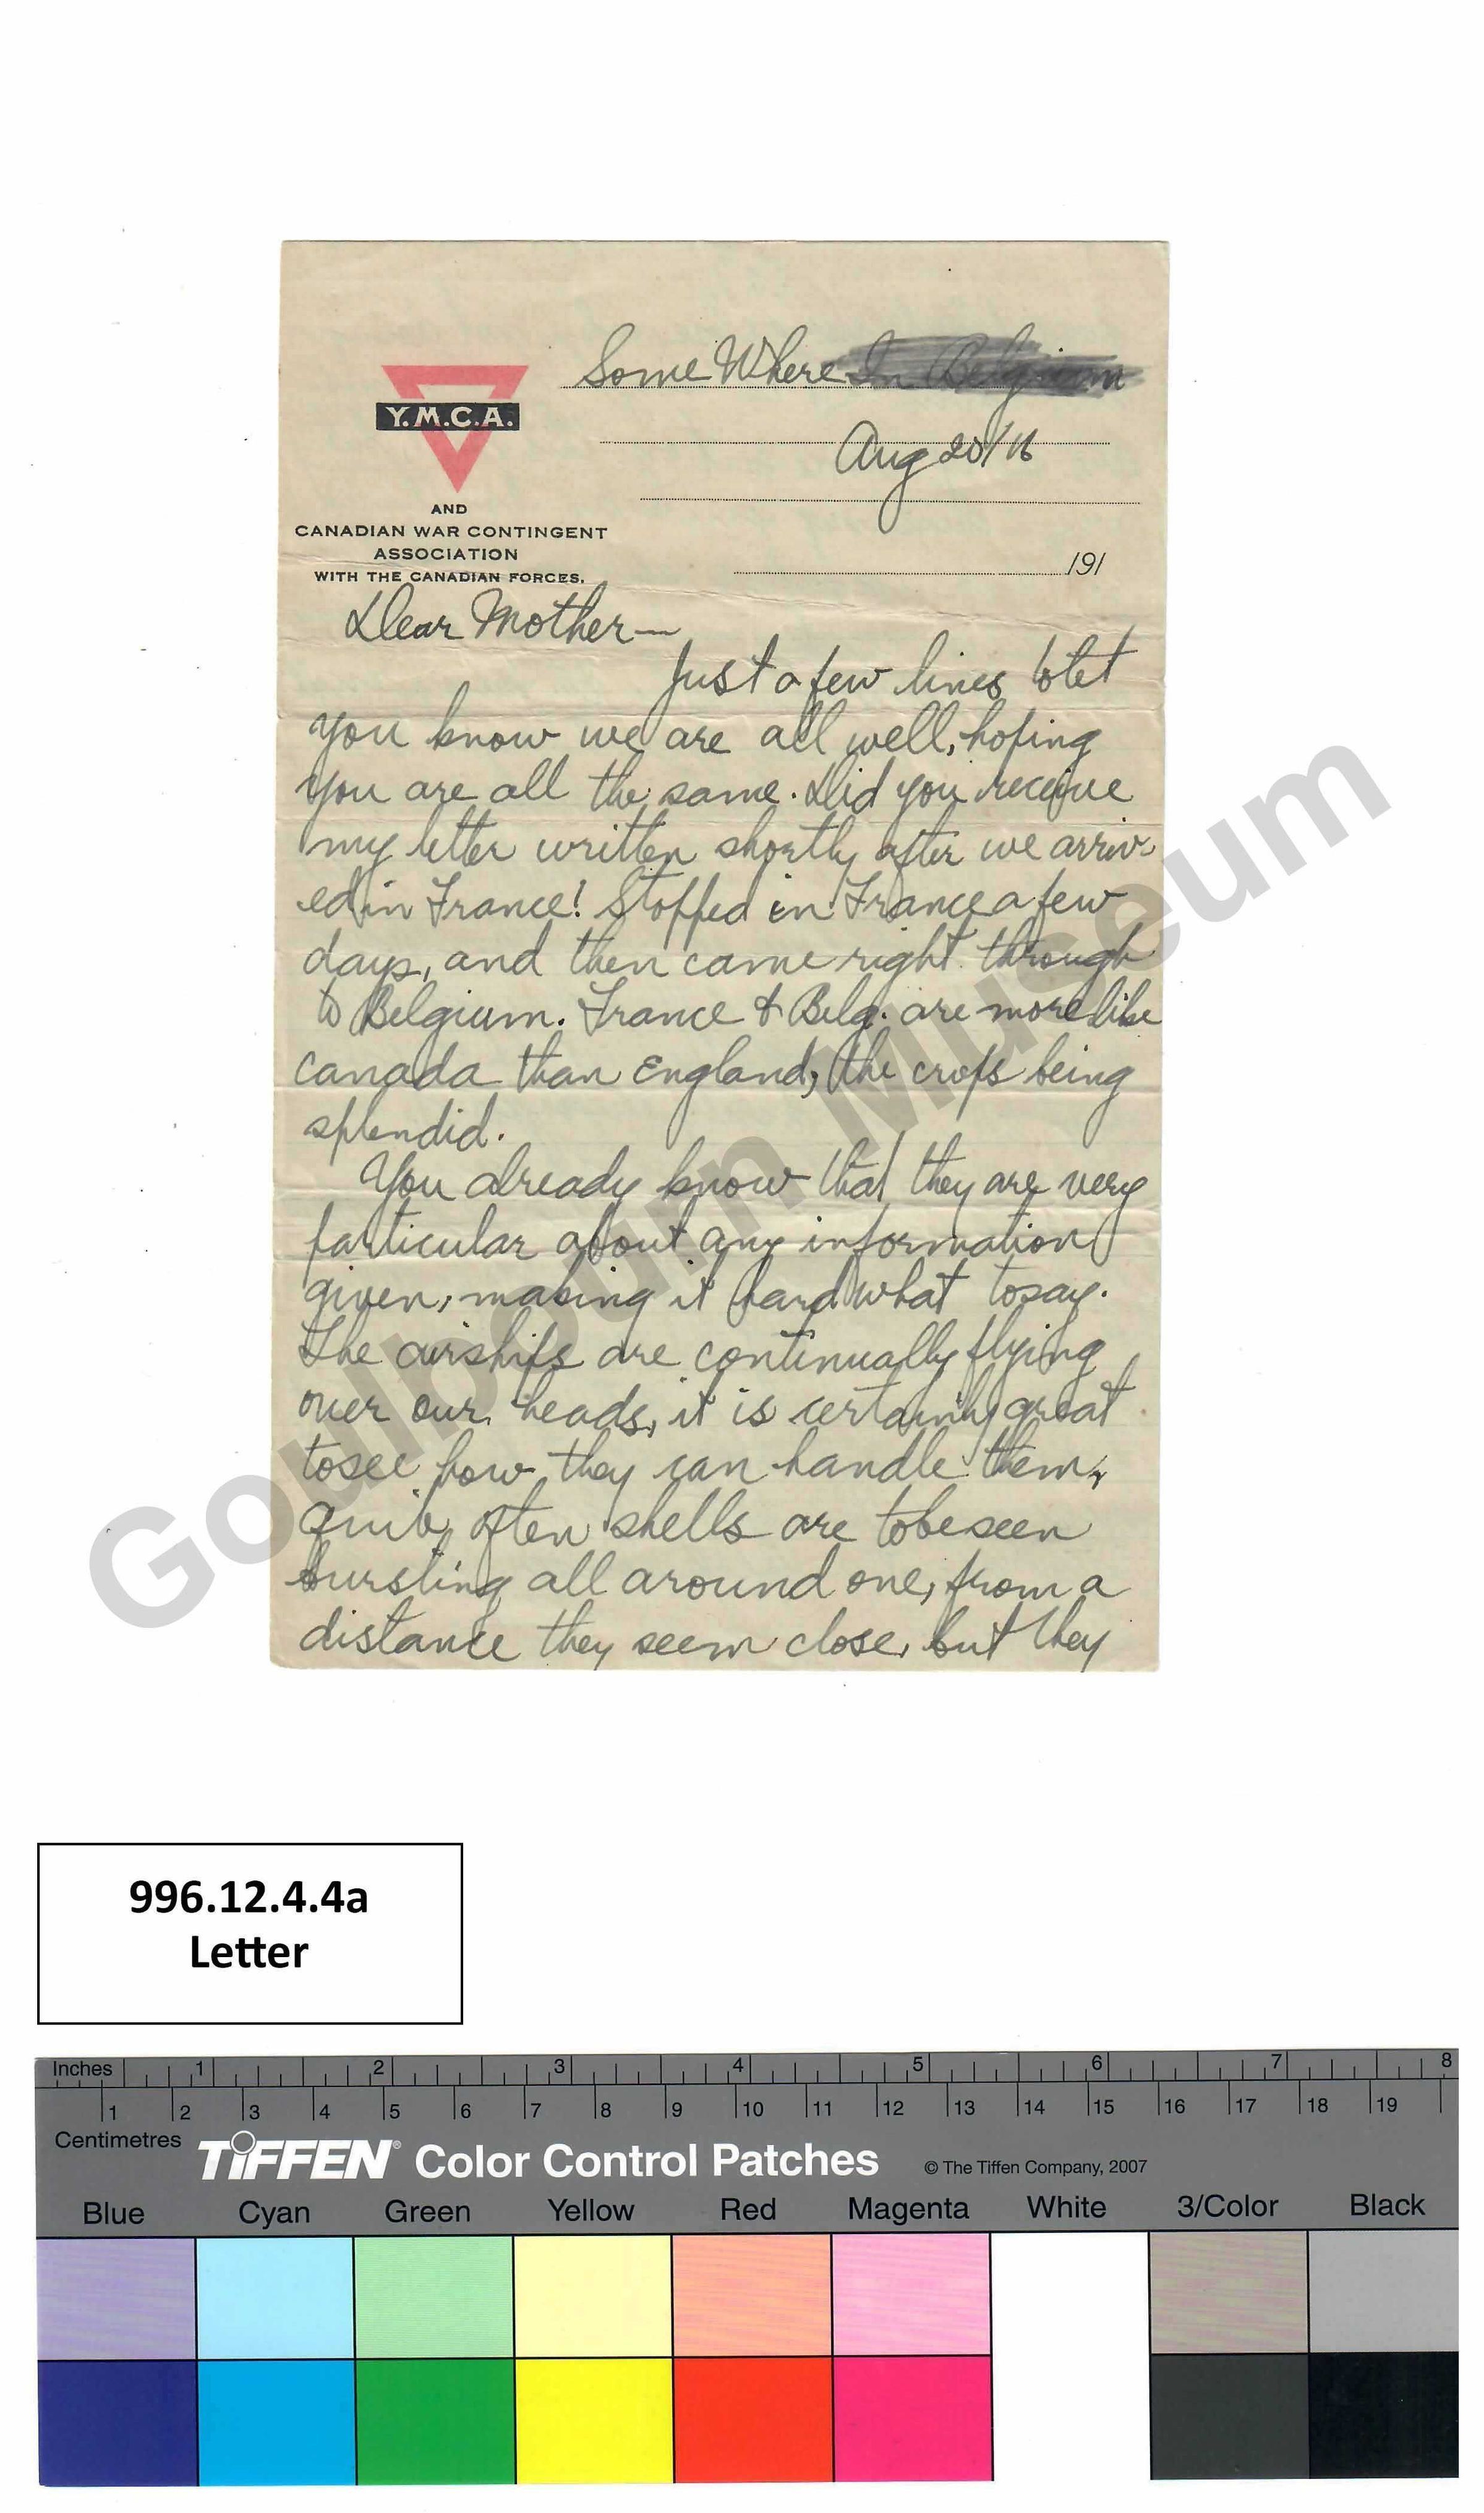 Some Where In Belgium
Aug 20/16
Y.M.C.A.
AND
CANADIAN WAR CONTINGENT
ASSOCIATION
WITH THE CANADIAN FORCES.
191
Dear Mother—
Just a few lines to let
you know we are all well, hoping
you are all the same. Did you receive
my letter written shortly after we arriv-
ed in France! Stopped in France a few
days, and then came right through
to Belgium. France & Belg. are more like
Canada than England, the crops being
splendid.
You already know that they are very
particular about any information
given, making it hard what to say.
The airships are continually flying
over our heads, it is certainly great
to see how they can handle them,
quite often shells are to be seen
bursting all around one, from a
distance they seem close, but they
Goulbourn Museum
996.12.4.4a
Letter
Inches 1 2 3 4 5 6 7 8
1 2 3 4 5 6 7 8 9 10 11 12 13 14 15 16 17 18 19
Centimetres
TIFFEN® Color Control Patches © The Tiffen Company, 2007
Blue Cyan Green Yellow Red Magenta White 3/Color Black